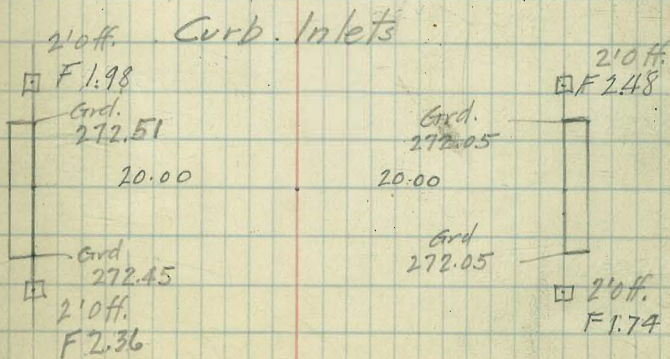 Curb. Inlets
2'Off.
F 1.98
Grd.
272.51
20.00
Grd
272.45
2'Off.
F 2.36
2'Off.
F 2.48
Grd.
272.05
20.00
Grd
272.05
2'Off.
F 1.74